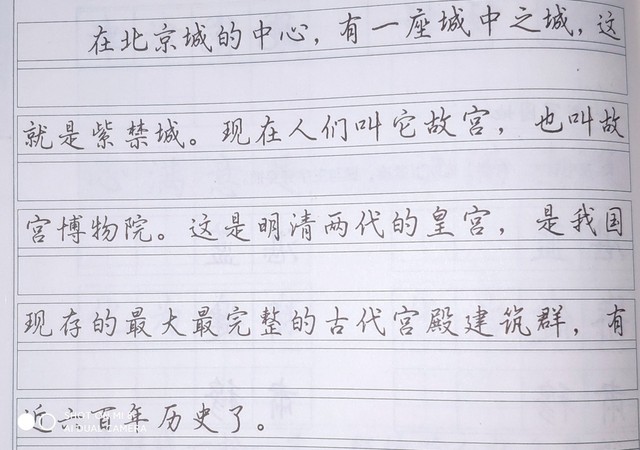 在北京城的中心，有一座城中之城，这
就是紫禁城。现在人们叫它故宫，也叫故
宫博物院。这是明清两代的皇宫，是我国
现存的最大最完整的古代宫殿建筑群，有
近六百年历史了。
SHOT ON MI
AI DUAL CAMERA